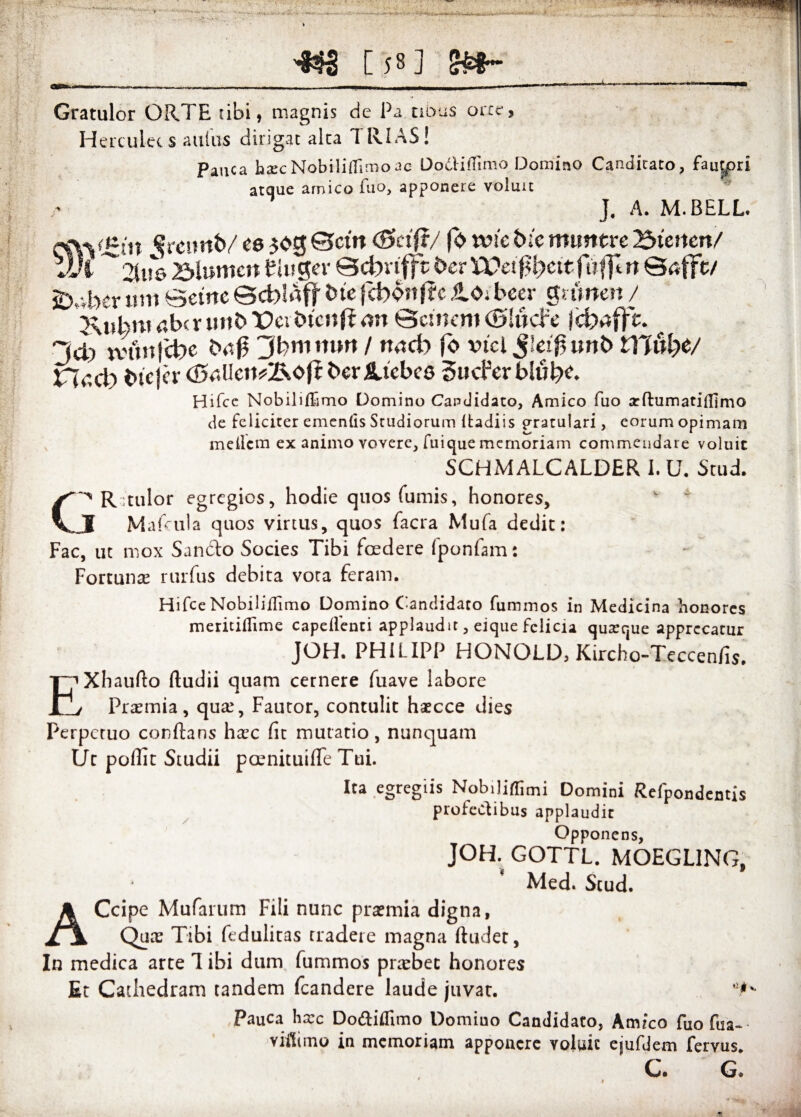 [58]
Gratulor ORTE tibi, magnis de Pa tibus orte,
Herculeos ausus dirigat alta TRIAS!
Pauca hæc Nobilissimo ac Doctissimo Domino Canditato, fautori
atque amico suo, apponere voluit
J. A. M. BELL.
Mein Freund/ es zog Sein Geist/ so wie die muntre Bienen/
Aus Blumen kluger Schrifft der Weißheit süssen Safft/
Daher um Seine Schläff die schönste Lorbeer grünen /
Ruhm aber und Verdienst an Seinem Glücke schafft.
Ich wünsche daß Ihm nun / nach so viel Fleiß und Mühe/
Nach dieser Gallen-Kost der Liebes Zucker blühe.
Hisce Nobilissimo Domino Candidato, Amico suo æstumatissimo
de feliciter emensis Studiorum stadiis gratulari, eorum opimam
messem ex animo vovere, suique memoriam commendare voluit
SCHMALCALDER I. U. Stud.
GRatulor egregios, hodie quos sumis, honores,
Mascula quos virtus, quos sacra Musa dedit:
Fac, ut mox Sancto Socies Tibi fœdere sponsam:
Fortunæ rursus debita vota feram.
Hisce Nobilissimo Domino Candidato summos in Medicina honores
meritissime capessenti applaudit, eique felicia quæque apprecatur
JOH. PHILIPP HONOLD, Kircho-Teccensis.
EXhausto studii quam cernere suave labore
Præmia, quæ, Fautor, contulit hæcce dies
Perpetuo constans hæc sit mutatio, nunquam
Ut possit Studii pœnituisse Tui.
Ita egregiis Nobilissimi Domini Respondentis
profectibus applaudit
Opponens,
JOH. GOTTL. MOEGLING,
Med. Stud.
ACcipe Musarum Fili nunc præmia digna,
Quæ Tibi sedulitas tradere magna studet,
In medica arte Tibi dum summos præbet honores
Et Cathedram tandem scandere laude juvat.
Pauca hæc Doctissimo Domino Candidato, Amico suo sua-
vissimo in memoriam apponere voluit ejusdem servus.
C. G.